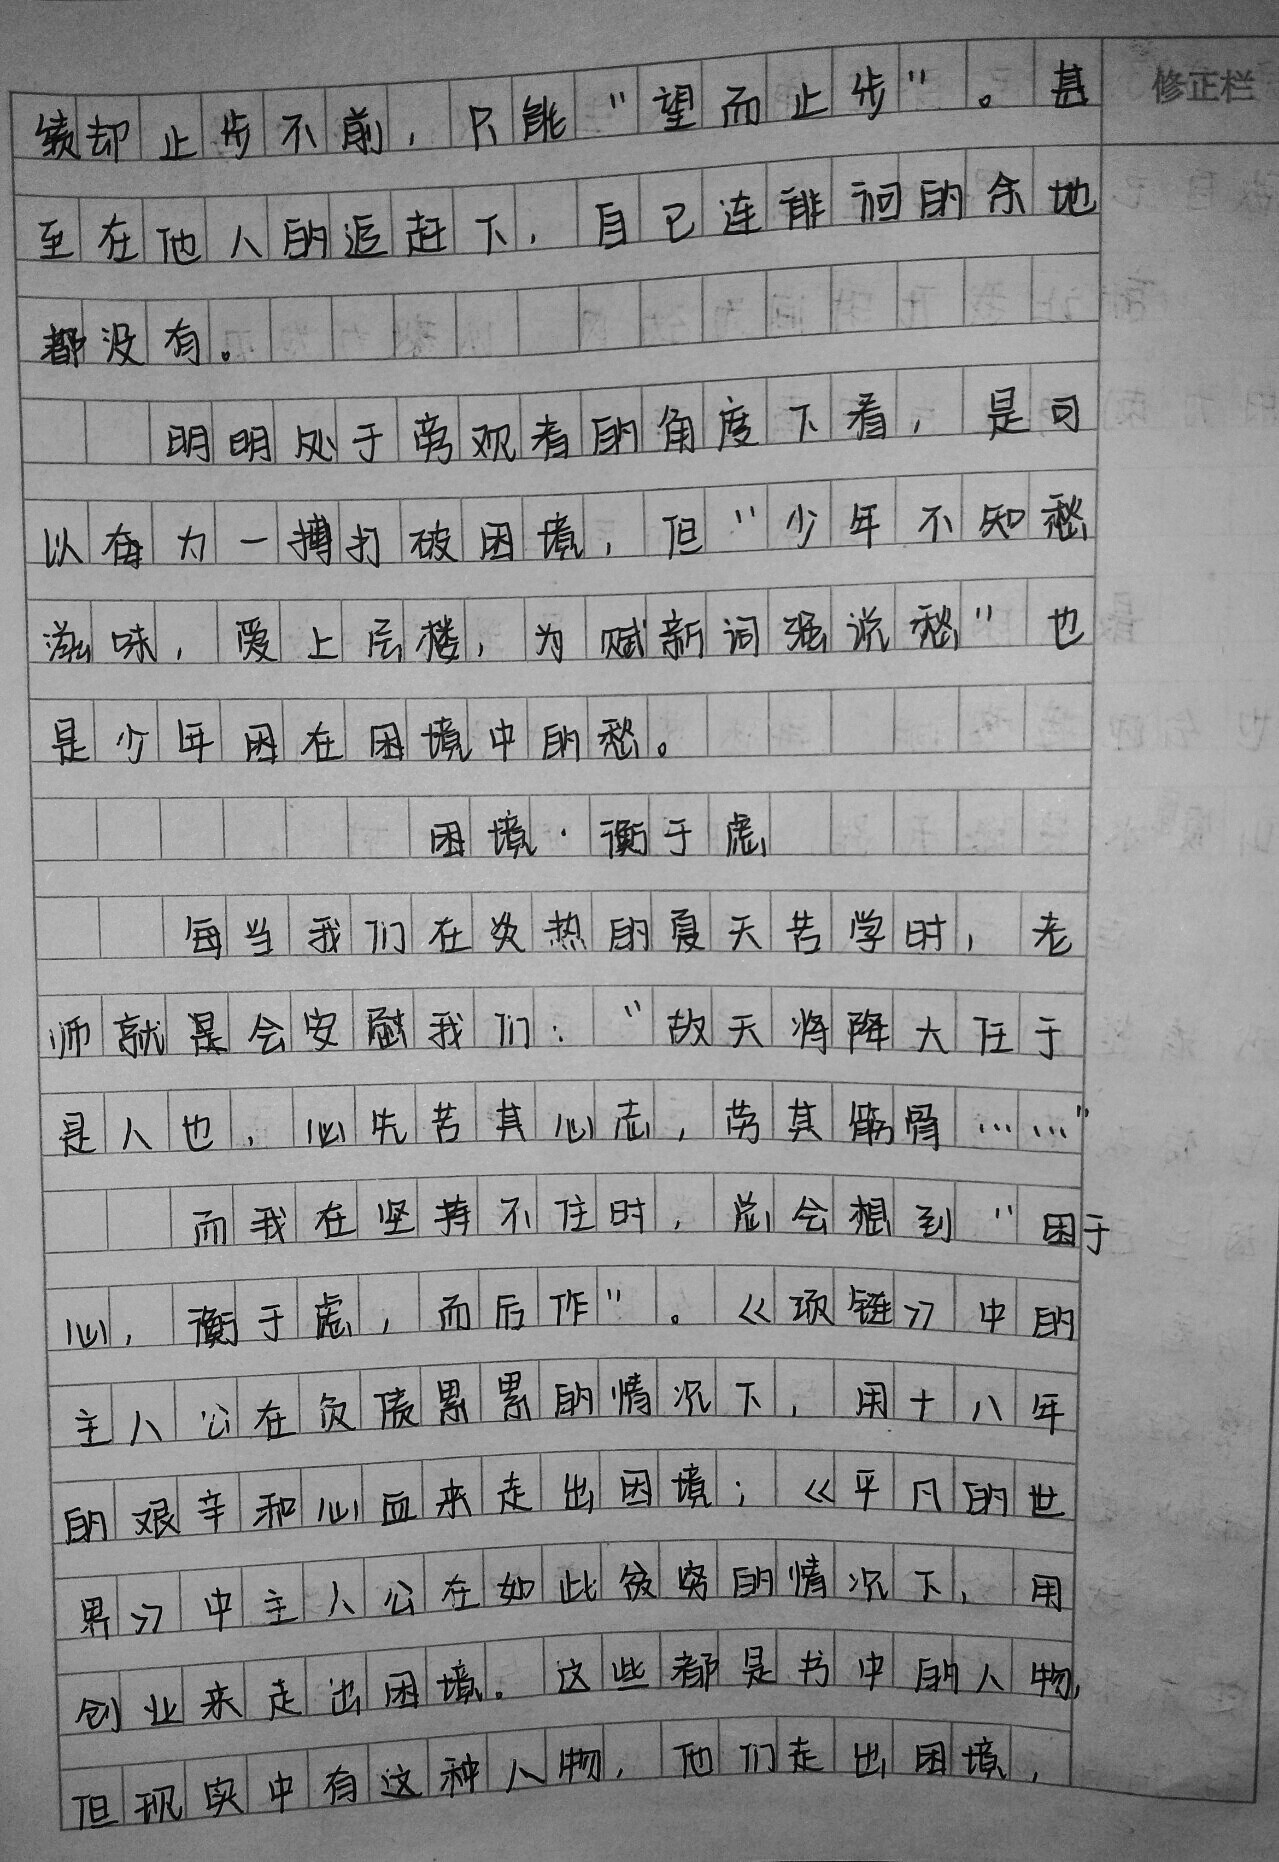 修正栏
绩却止步不前，只能“望而止步”。甚
至在他人的追赶下，自己连徘徊的余地
都没有。
明明处于旁观者的角度下看，是可
以奋力一搏打破困境，但“少年不知愁
滋味，爱上层楼，为赋新词强说愁”也
是少年困在困境中的愁。
困境·衡于虑
每当我们在炎热的夏天苦学时，老
师就是会安慰我们：“故天将降大任于
是人也，必先苦其心志，劳其筋骨……”
而我在坚持不住时，总会想到“困于
心，衡于虑，而后作”。《项链》中的
主人公在负债累累的情况下，用十八年
的艰辛和心血来走出困境；《平凡的世
界》中主人公在如此贫穷的情况下，用
创业来走出困境。这些都是书中的人物，
但现实中有这种人物，他们走出困境，